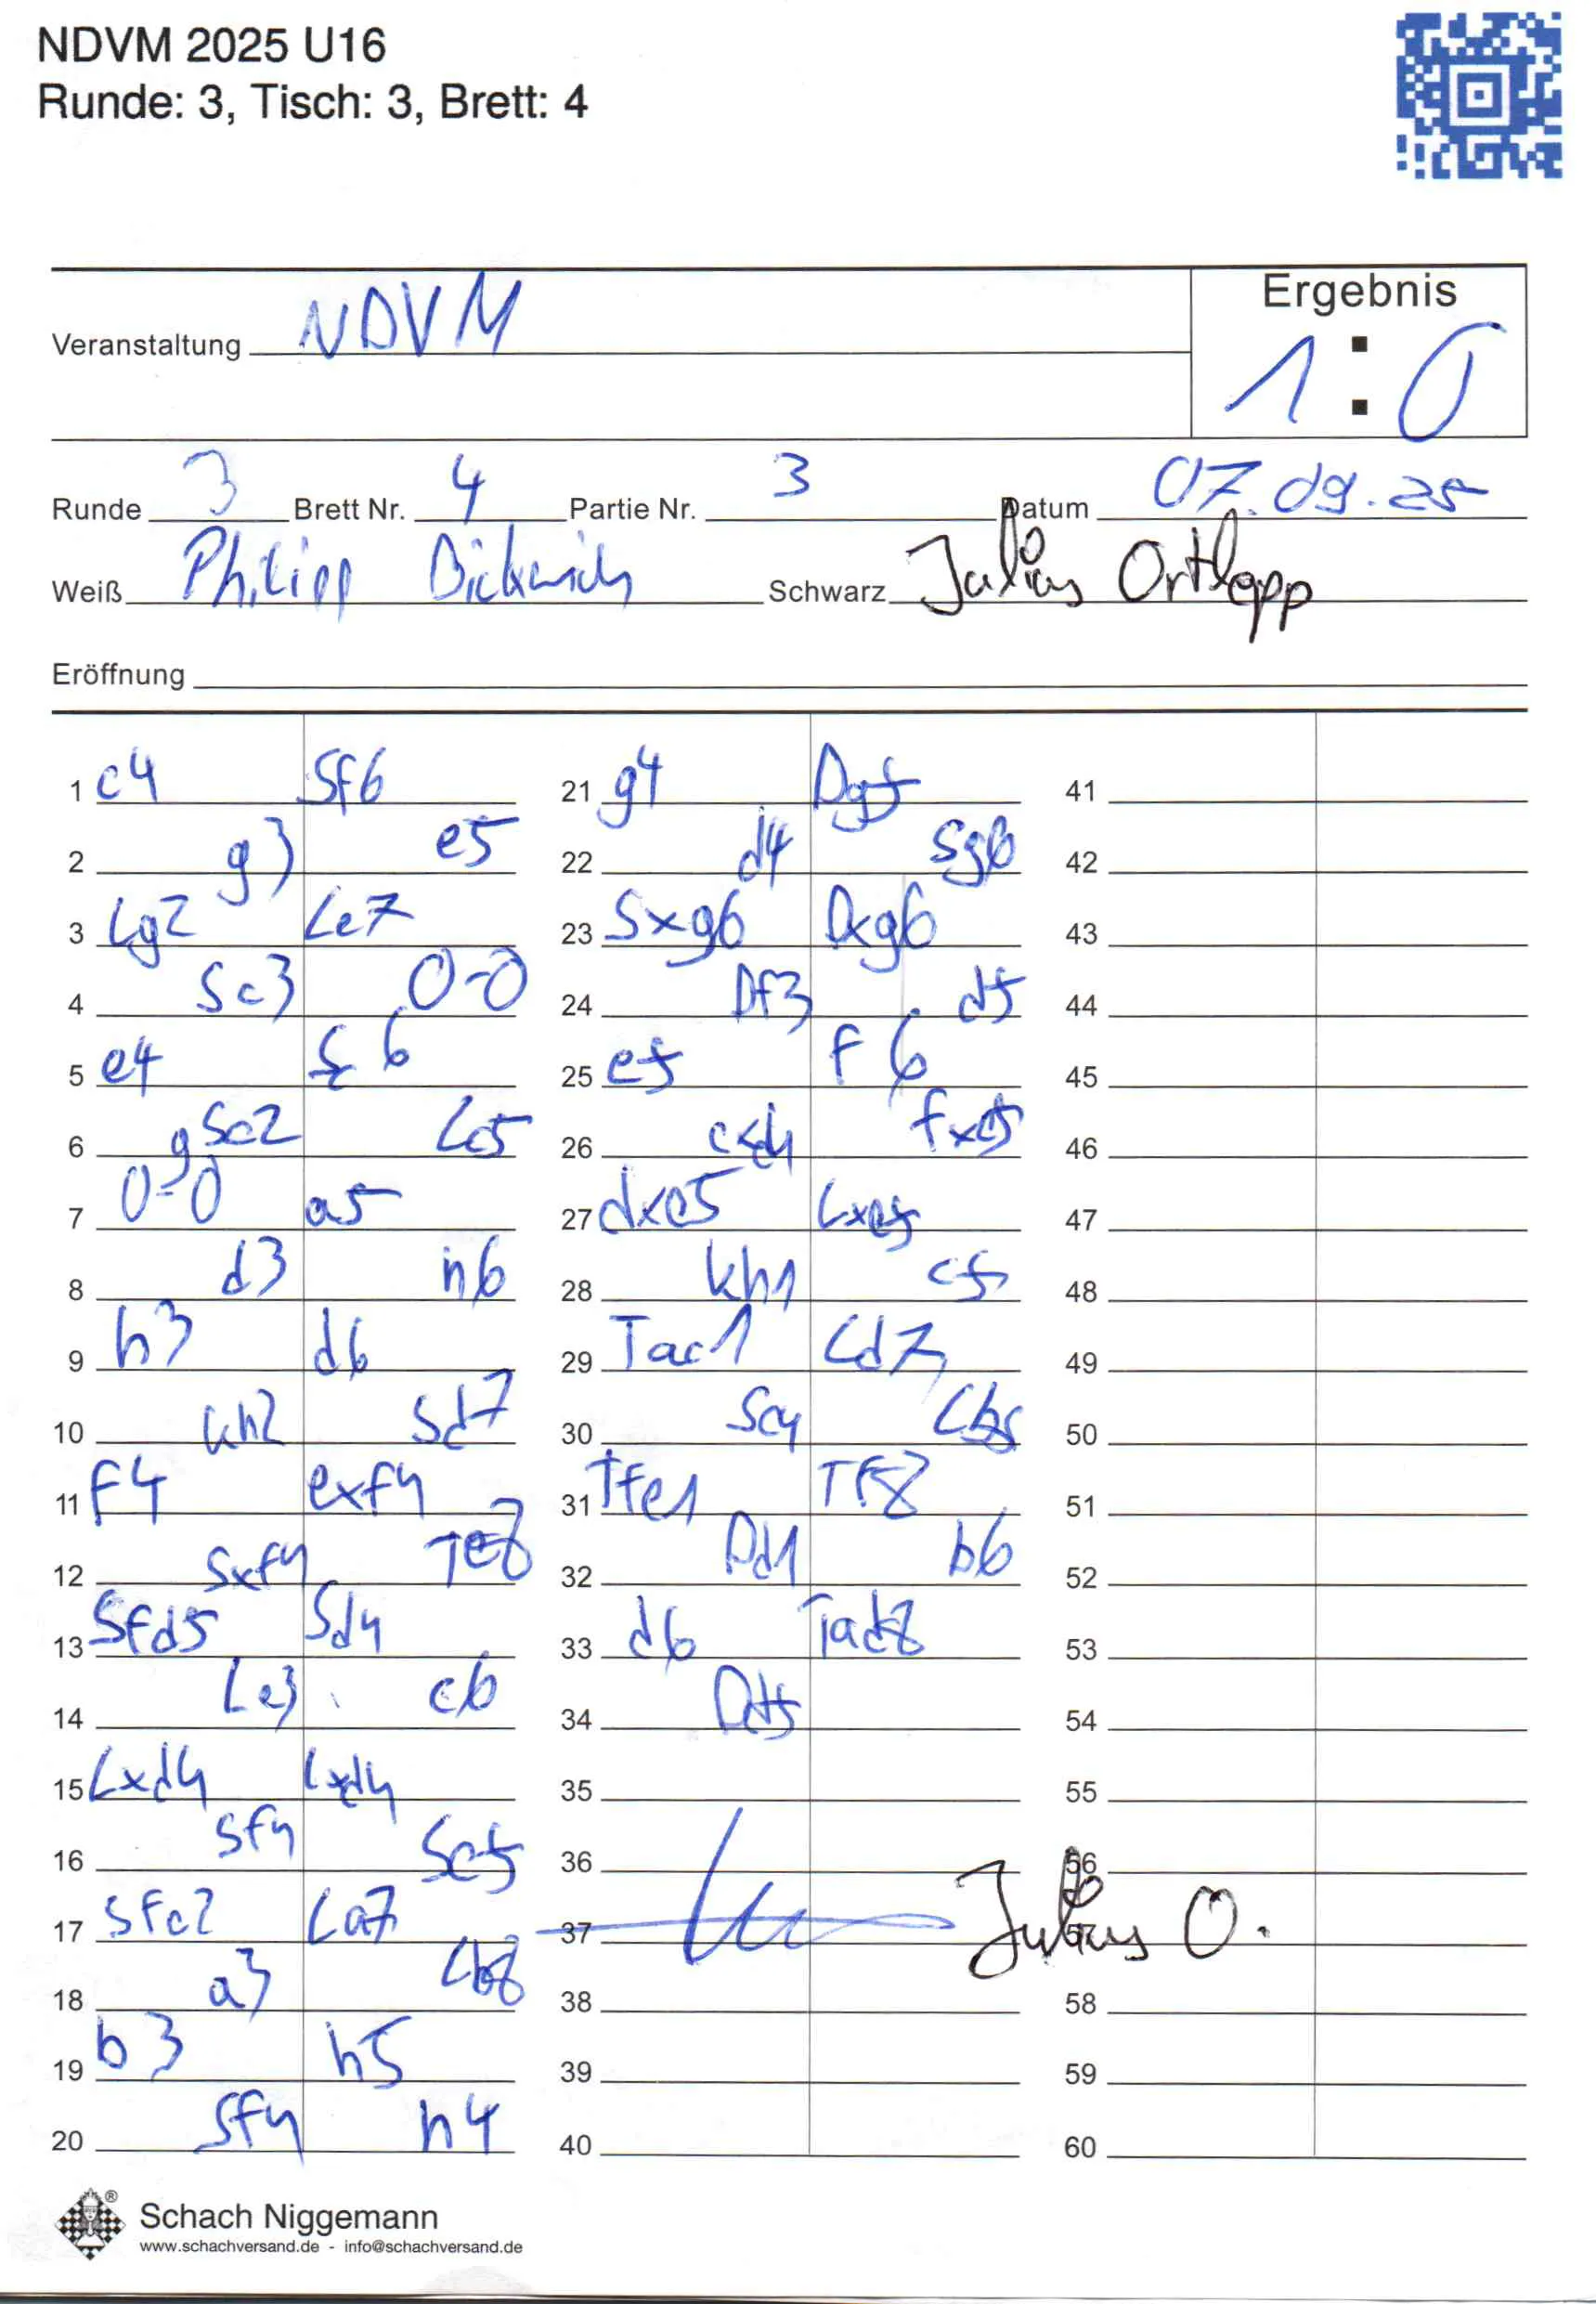 NDVM 2025 U16
Runde: 3, Tisch: 3, Brett: 4
Ergebnis
Veranstaltung NDVM
1 : 0
Runde 3 Brett Nr. 4 Partie Nr. 3 Datum 07.09.25
Weiß Philipp Schwarz Julius Ortlepp
Eröffnung
1 c4 Sf6 21 g4 Dg5 41
2 g3 e5 22 d4 Sg6 42
3 Lg2 Le7 23 Sxg6 Dxg6 43
4 Sc3 0-0 24 Df3 d5 44
5 e4 Sc6 25 e5 f6 45
6 gSe2 Lc5 26 cxd4 fxe5 46
7 0-0 a5 27 dxe5 Lxe5 47
8 d3 h6 28 Kh1 c5 48
9 h3 d6 29 Tac1 Ld7 49
10 Kh2 Sd7 30 Sa4 Lb5 50
11 f4 exf4 31 Tfe1 Tf8 51
12 Sxf4 Te8 32 Dd1 b6 52
13 Sfd5 Sd4 33 d6 Tad8 53
14 Le3 c6 34 Dd5 54
15 Lxd4 Lxd4 35 55
16 Sf4 Se5 36 56
17 Sfe2 La7 37 Julius O.
18 a3 Lb8 38 58
19 b3 h5 39 59
20 Sf4 h4 40 60
® Schach Niggemann
www.schachversand.de - info@schachversand.de